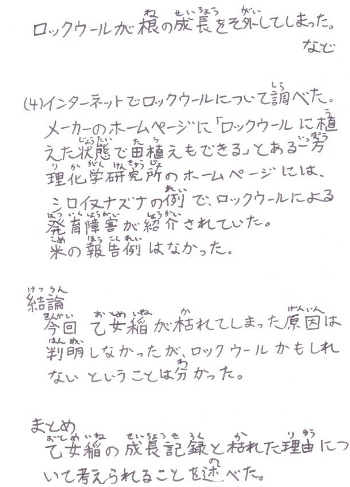 ロックウールが根の成長をそ外してしまった。
など
(4)インターネットでロックウールについて調べた。
メーカーのホームページに「ロックウールに植
えた状態で田植えもできる」とある一方
理化学研究所のホームページには、
シロイヌナズナの例で、ロックウールによる
発育障害が紹介されていた。
米の報告例はなかった。
結論
今回 乙女稲が枯れてしまった原因は
判明しなかったが、ロックウールかもしれ
ないということは分かった。
まとめ
乙女稲の成長記録と枯れた理由につ
いて考えられることを述べた。